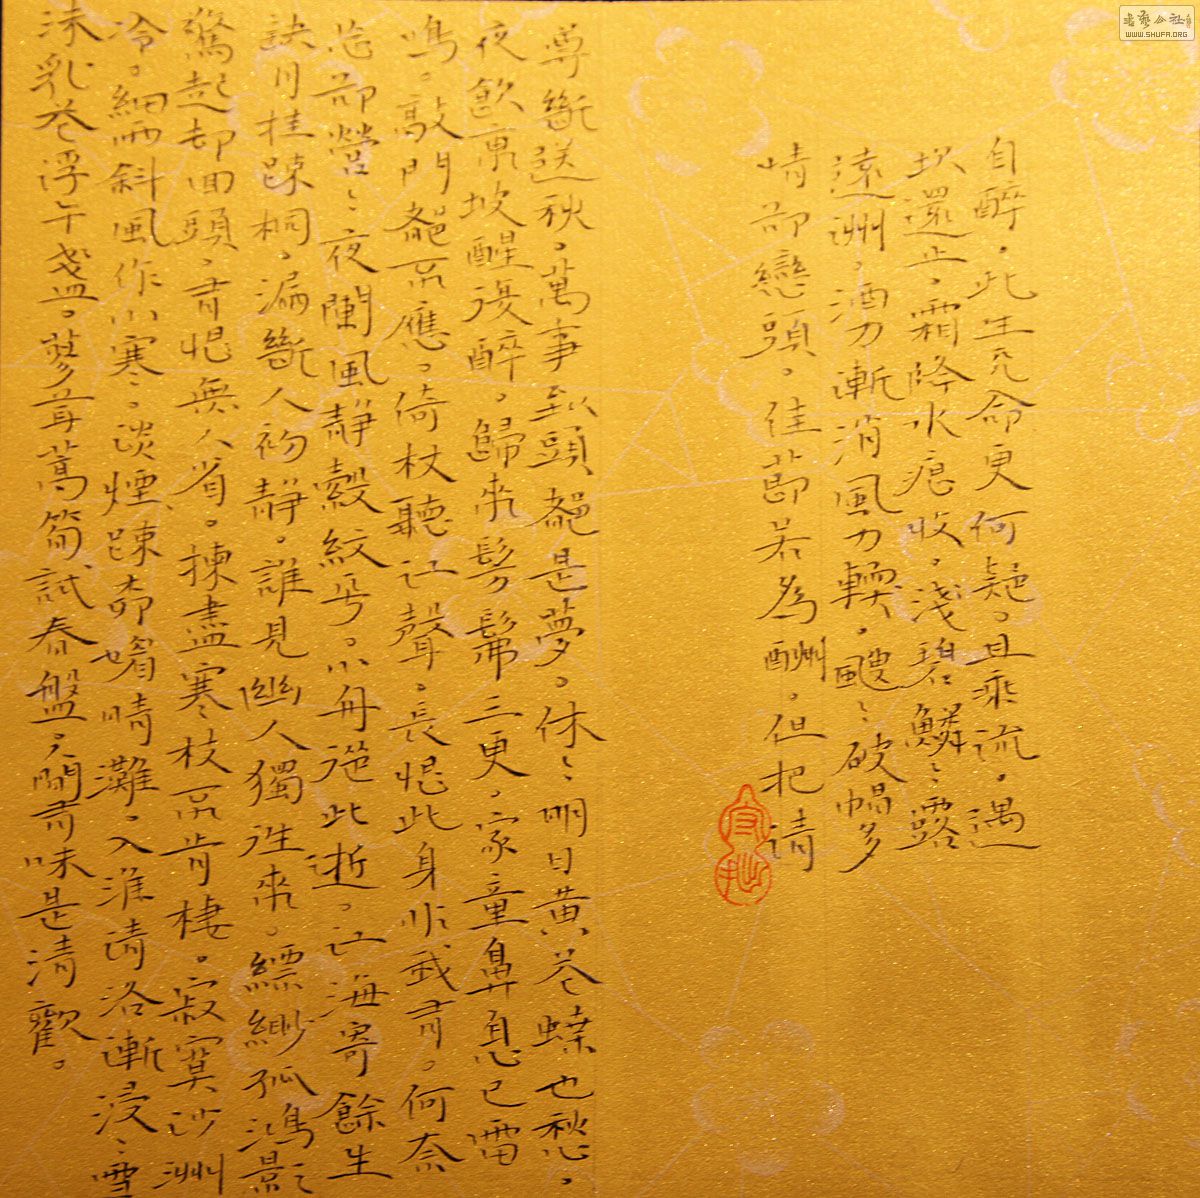 自醉。此生元命更何疑。且乘流。遇
坎還止。霜降水痕收。淺碧鱗〻露
遠洲。酒力漸消風力輭。颼〻破帽多
情卻戀頭。佳節若為酬。但把清
尊斷送秋。萬事到頭都是夢。休〻明日黃花蝶也愁。
夜飲東坡醒復醉。歸來髣髴三更。家童鼻息已雷
鳴。敲門都不應。倚杖聽江聲。長恨此身非我有。何奈
忘卻營〻夜闌風靜縠紋平。小舟從此逝。江海寄餘生
缺月挂疎桐。漏斷人初靜。誰見幽人獨往來。縹緲孤鴻影
驚起却回頭。有恨無人省。揀盡寒枝不肯棲。寂寞沙洲
冷。細雨斜風作小寒。淡煙疎柳媚晴灘。入淮清洛漸浸〻雪
沫乳花浮午盞。蓼茸蒿筍試春盤。人間有味是清歡。
守拙
書藝公社
WWW.SHUFA.ORG